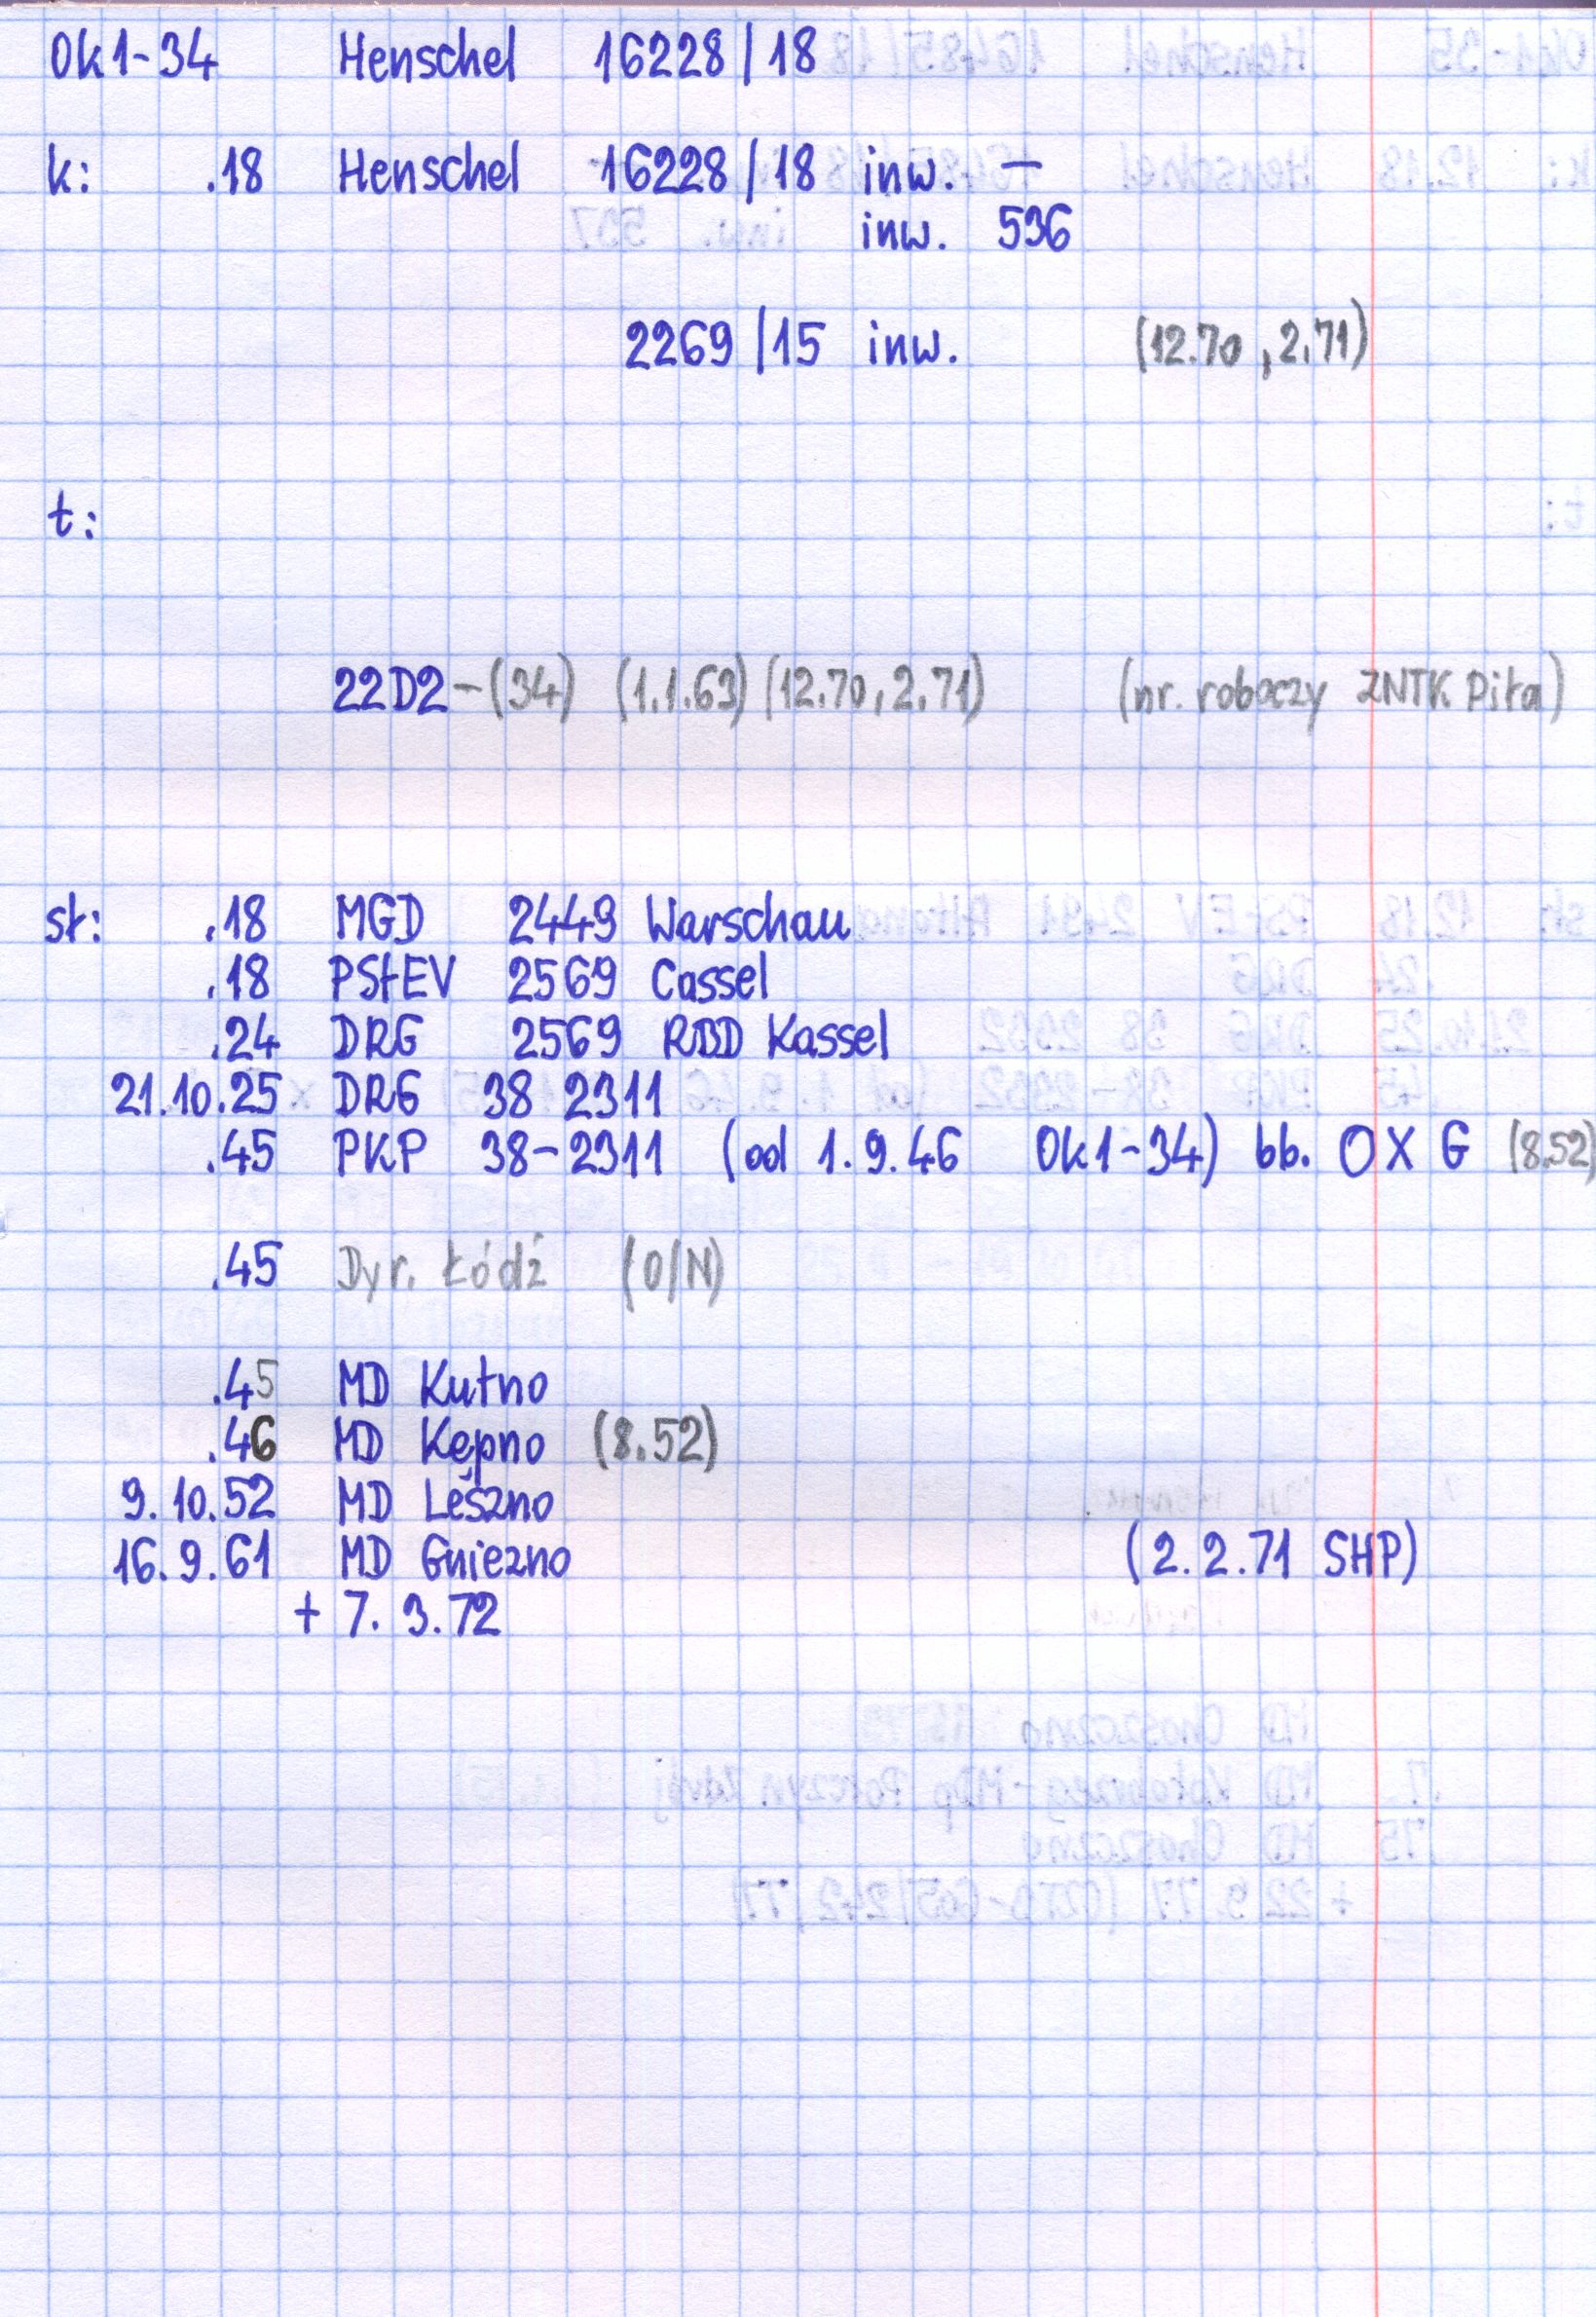 Ok1-34 Henschel 16228/18
k: .18 Henschel 16228/18 inw. —
inw. 536
2269/15 inw. (12.70, 2.71)
t:
22D2-(34) (1.1.63) (12.70, 2.71) (nr. roboczy ZNTK Piła)
st: .18 MGD 2449 Warschau
.18 PStEV 2569 Cassel
.24 DRG 2569 RBD Kassel
21.10.25 DRG 38 2311
.45 PKP 38-2311 (od 1.9.46 Ok1-34) bb. OXG (8.52)
.45 Dyr. Łódź (O/N)
.45 MD Kutno
.46 MD Kępno (8.52)
9.10.52 MD Leszno
16.9.61 MD Gniezno (2.2.71 SHP)
+ 7.3.72